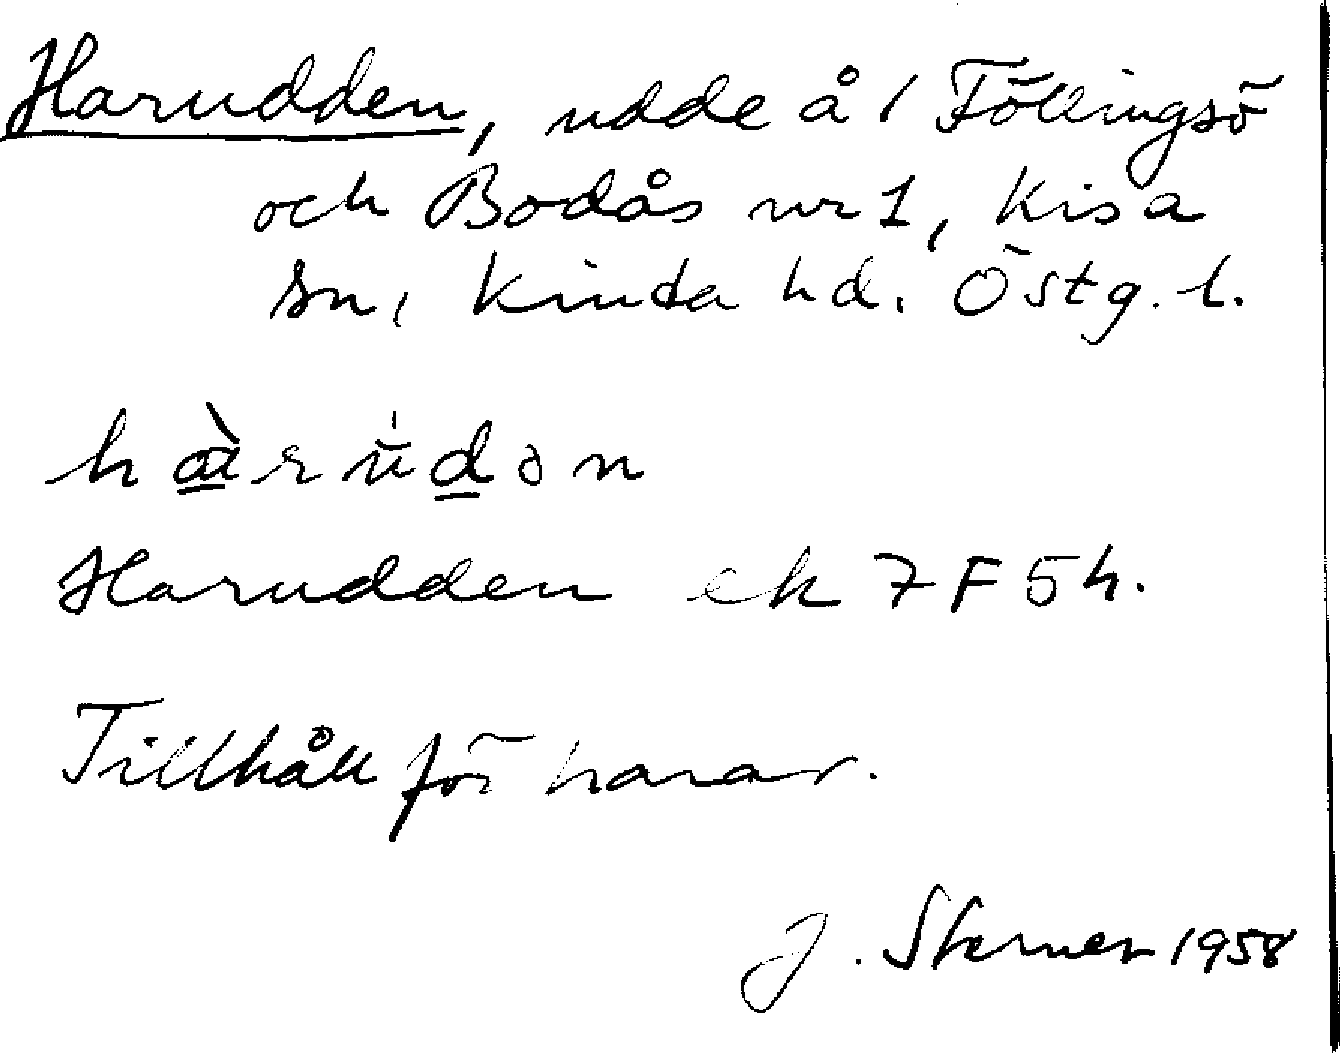 Harudden, udde å 1 Föllingsö
och Bodås nr 1, Kisa
sn, Kinda hd. Östg. l.
hàrùdən
Harudden ek 7 F 5 h.
Tillhåll för harar.
J. Sterner 1958